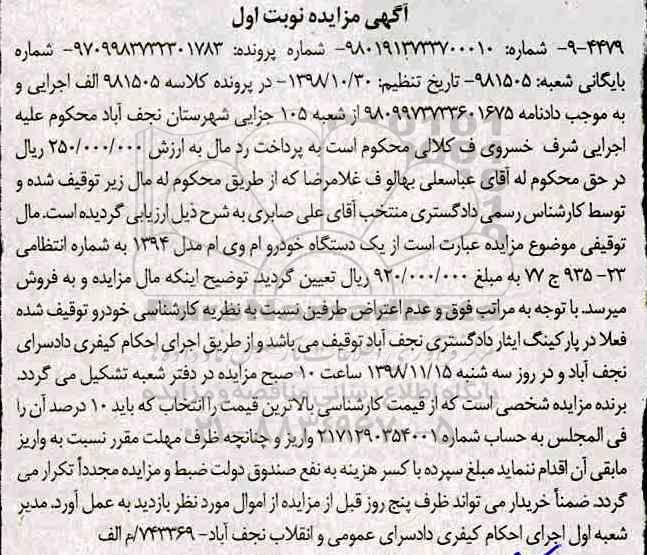 آگهی مزایده نوبت اول
۹-۴۴۷۹- شماره: ۹۸۰۱۹۱۳۷۳۳۷۰۰۰۱۰- شماره پرونده: ۹۷۰۹۹۸۳۷۳۲۳۰۱۷۸۳- شماره
بایگانی شعبه: ۹۸۱۵۰۵- تاریخ تنظیم: ۱۳۹۸/۱۰/۳۰- در پرونده کلاسه ۹۸۱۵۰۵ الف اجرایی و
به موجب دادنامه ۹۸۰۹۹۷۳۷۳۳۶۰۱۶۷۵ از شعبه ۱۰۵ جزایی شهرستان نجف آباد محکوم علیه
اجرایی شرف خسروی ف کلالی محکوم است به پرداخت رد مال به ارزش ۲۵۰/۰۰۰/۰۰۰ ریال
در حق محکوم له آقای عباسعلی بهالو ف غلامرضا که از طریق محکوم له مال زیر توقیف شده و
توسط کارشناس رسمی دادگستری منتخب آقای علی صابری به شرح ذیل ارزیابی گردیده است. مال
توقیفی موضوع مزایده عبارت است از یک دستگاه خودرو ام وی ام مدل ۱۳۹۴ به شماره انتظامی
۲۳- ۹۳۵ ج ۷۷ به مبلغ ۹۲۰/۰۰۰/۰۰۰ ریال تعیین گردید. توضیح اینکه مال مزایده و به فروش
میرسد. با توجه به مراتب فوق و عدم اعتراض طرفین نسبت به نظریه کارشناسی خودرو توقیف شده
فعلا در پارکینگ ایثار دادگستری نجف آباد توقیف می باشد و از طریق اجرای احکام کیفری دادسرای
نجف آباد و در روز سه شنبه ۱۳۹۸/۱۱/۱۵ ساعت ۱۰ صبح مزایده در دفتر شعبه تشکیل می گردد.
برنده مزایده شخصی است که از قیمت کارشناسی بالاترین قیمت را انتخاب که باید ۱۰ درصد آن را
فی المجلس به حساب شماره ۲۱۷۱۲۹۰۳۵۴۰۰۱ واریز و چنانچه ظرف مهلت مقرر نسبت به واریز
مابقی آن اقدام ننماید مبلغ سپرده با کسر هزینه به نفع صندوق دولت ضبط و مزایده مجدداً تکرار می
گردد. ضمناً خریدار می تواند ظرف پنج روز قبل از مزایده از اموال مورد نظر بازدید به عمل آورد. مدیر
شعبه اول اجرای احکام کیفری دادسرای عمومی و انقلاب نجف آباد- ۷۴۳۳۶۹/م الف